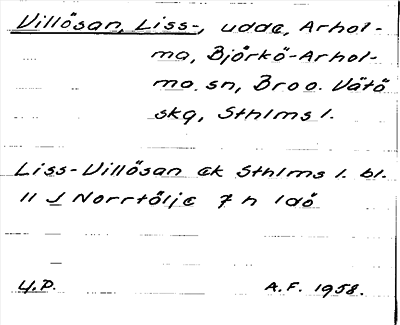 Villösan, Liss-, udde, Arhol-
ma, Björkö-Arhol-
ma sn, Bro o. Vätö
skg, Sthlms l.
Liss-Villösan ek Sthlms l. bl.
11 J Norrtälje 7 h Idö
U.P. A.F. 1958.